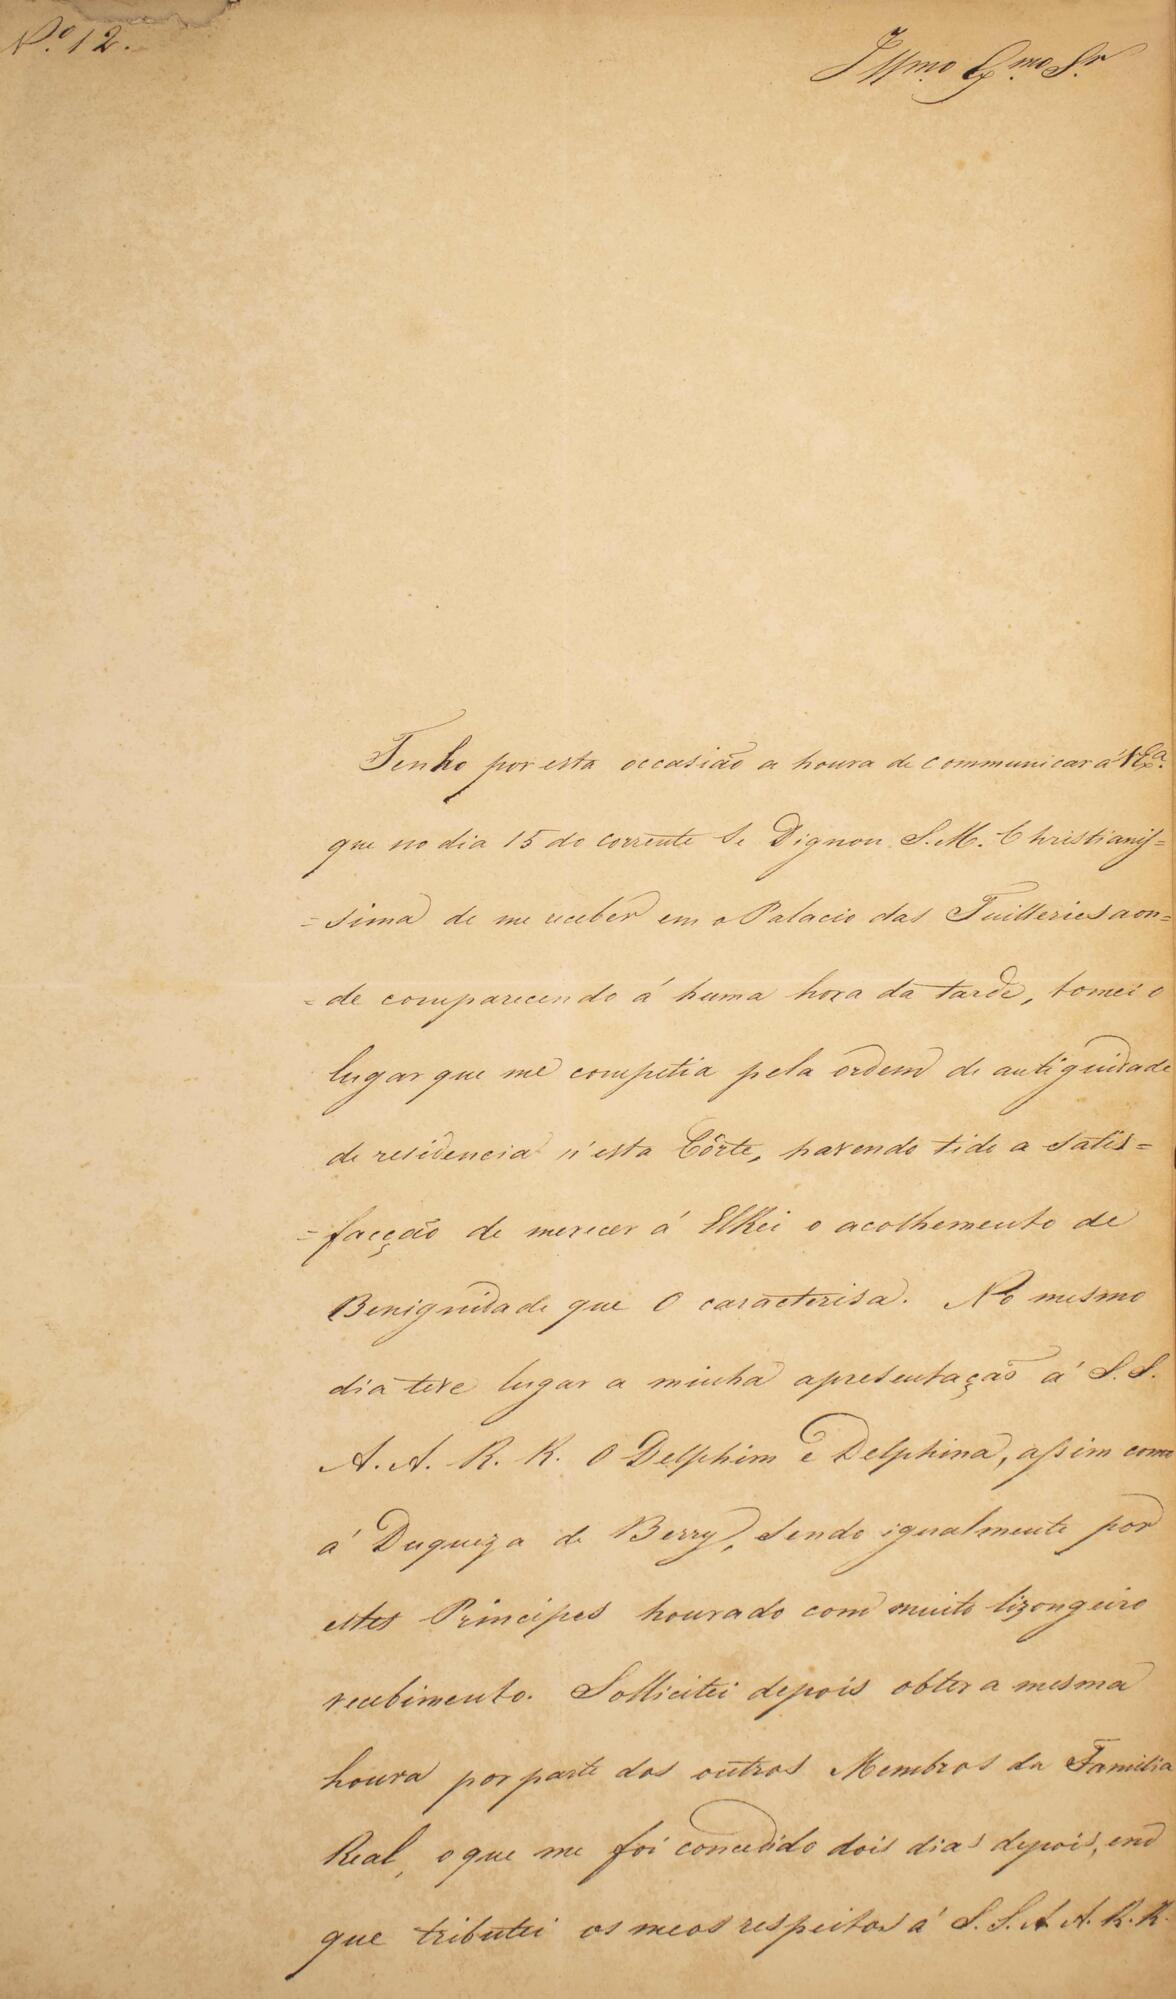 N.º 12.
Illmo. Exmo. Sr.
Tenho por esta occasião a honra de communicar á V. Exa.
que no dia 15 do corrente Se Dignou S. M. Christianis=
=sima de me receber em o Palacio das Tuilleries aon=
=de comparecendo á huma hora da tarde, tomei o
lugar que me competia pela ordem de antiguidade
de residencia n'esta Côrte, havendo tido a satis=
=facção de merecer á ElRei o acolhemento de
Benignidade que O caracterisa. No mesmo
dia teve lugar a minha apresentação á S. S.
A. A. R. R. O Delphim e Delphina, assim como
á Duqueza de Berry, sendo igualmente por
estes Principes honrado com muito lizongeiro
recebimento. Sollicitei depois obter a mesma
honra por parte dos outros Membros da Familia
Real, o que me foi concedido dois dias depois, em
que tributei os meos respeitos á S. S. A. A. R. R.